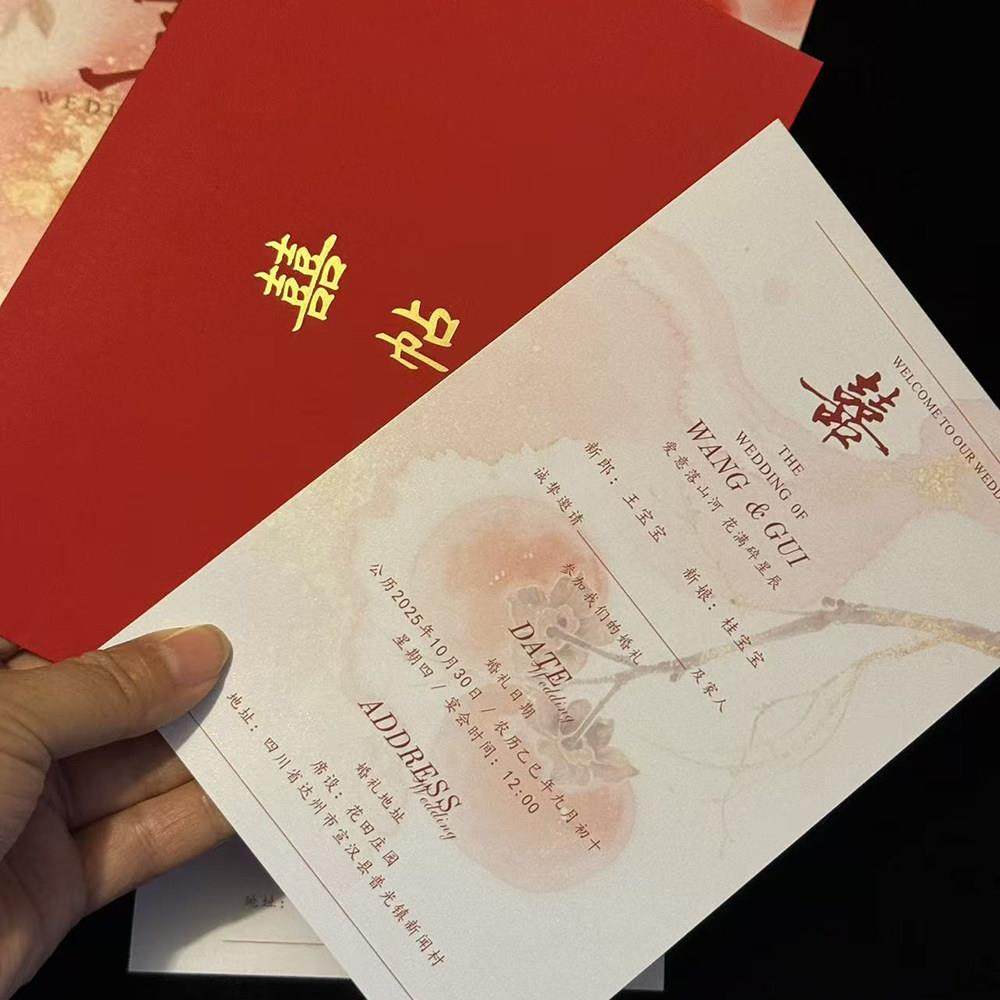 WEDD
囍
帖
WELCOME TO OUR WEDD
囍
THE
WEDDING OF
WANG & GUI
爱意落山河 花满碎星辰
新郎：王宝宝 新娘：桂宝宝
诚挚邀请 及家人
参加我们的婚礼
DATE
Wedding
婚礼日期
公历2025年10月30日 / 农历乙巳年九月初十
星期四 / 宴会时间：12:00
ADDRESS
Wedding
婚礼地址
席设：花田庄园
地址：四川省达州市宣汉县普光镇新闻村
地址：